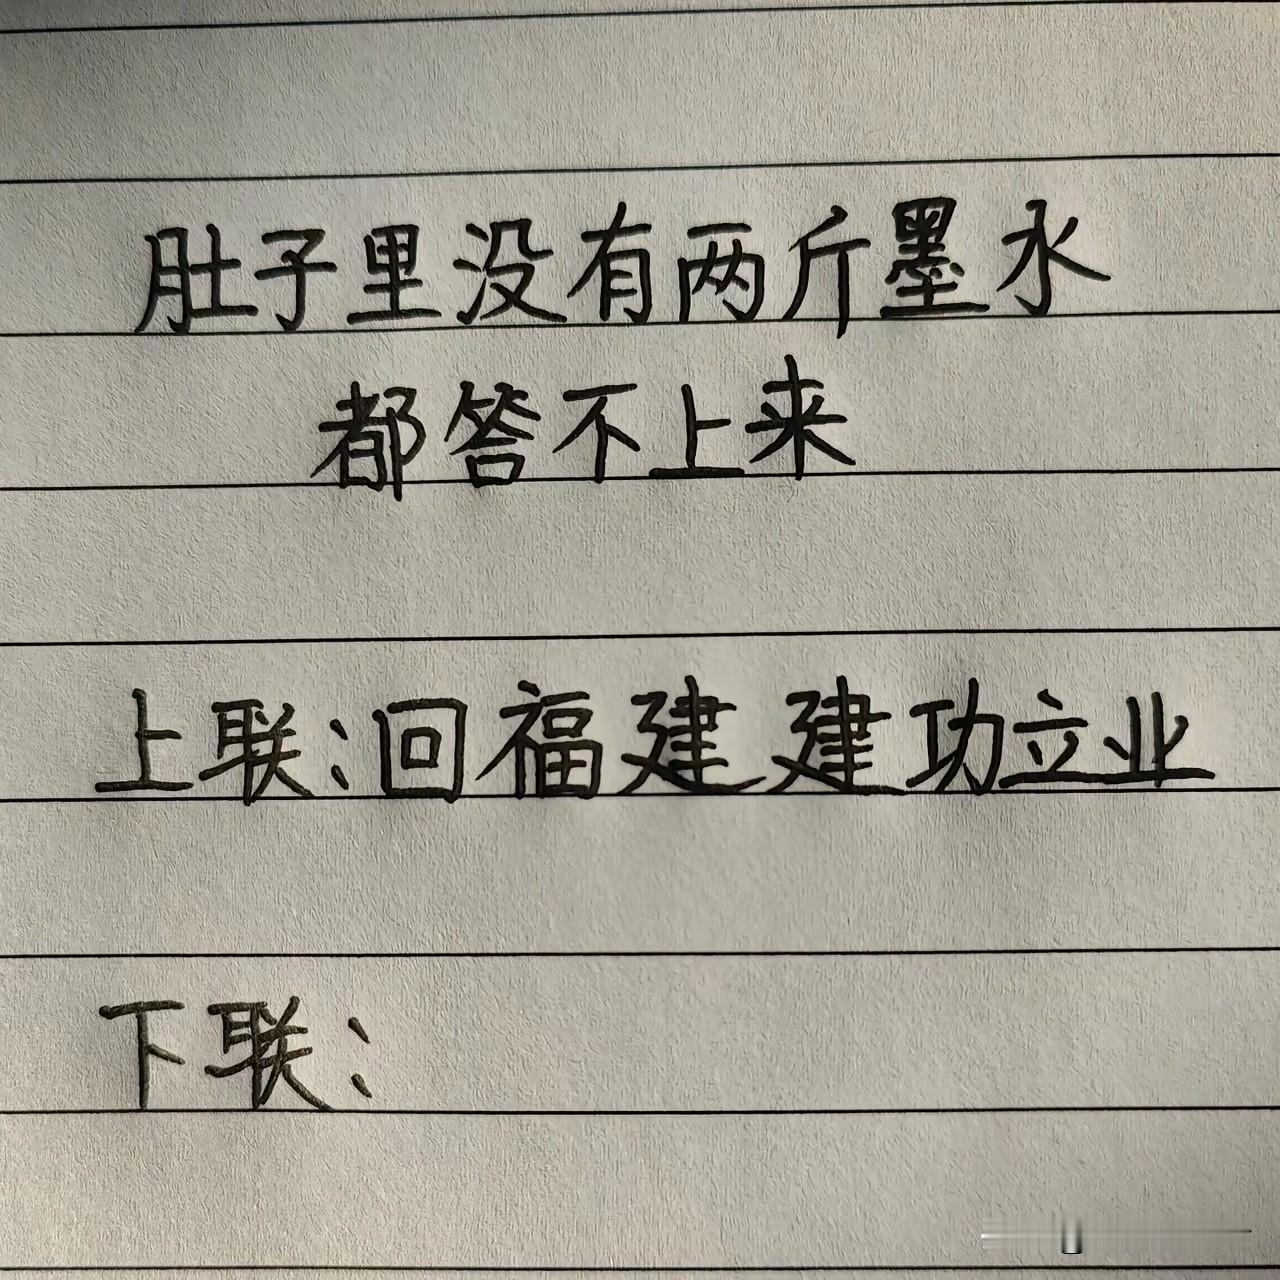 肚子里没有两斤墨水
都答不上来
上联:回福建建功立业
下联: